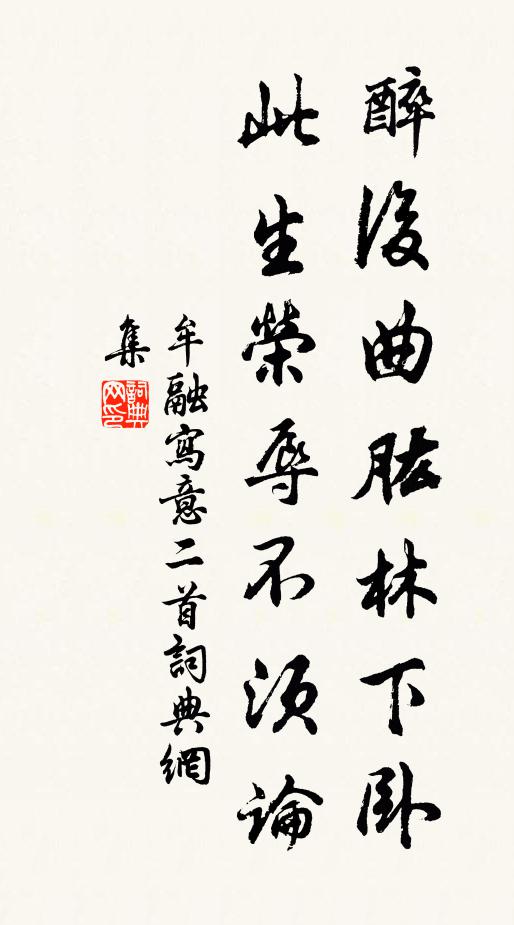 醉後曲肱林下卧
此生榮辱不須論
牟融寫意二首詞典網
集
詞典網印